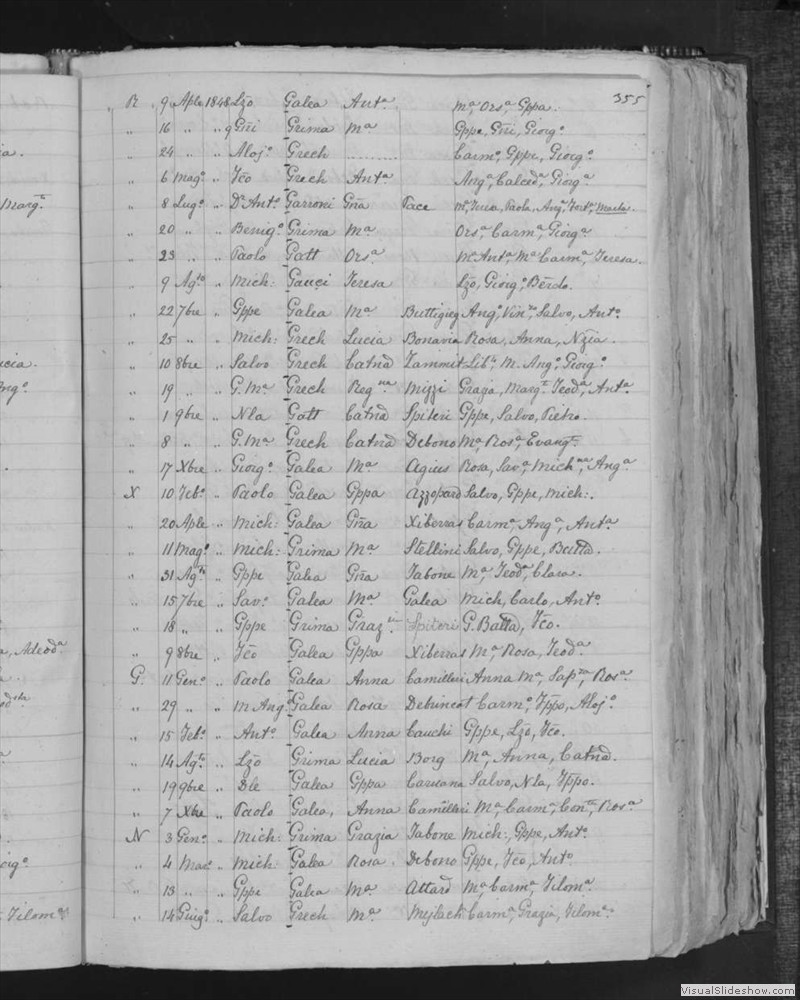 355
R 9 Aple 1848 Lzo Galea Antª Mª, Orsª, Gppa.
„ 16 „ „ Gñi Grima Mª Gppe, Gñi, Giorgº
„ 24 „ „ Alojº Grech ........... Carmº, Gppe, Giorgº
„ 6 Magº „ Fcõ Grech Antª Angª, Calcedª, Giorgª
„ 8 Lugº „ Dn Antº Garroni Gña Pace Mª, Paola, Angª, Marta.
„ 20 „ „ Benigº Grima Mª Orsª, Carmª, Giorgª
„ 23 „ „ Paolo Gatt Orsª Mª Antª, Mª Carmª, Teresa.
„ 9 Agto „ Mich: Gauci Teresa Lzo, Giorgº, Berdo.
„ 22 7bre „ Gppe Galea Mª Buttigieg Angº, Vinzo, Salvo, Antº
„ 25 „ „ Mich: Grech Lucia Bonavia Rosa, Anna, Nzia.
„ 10 8bre „ Salvo Grech Catña Zammit Libª, M. Angº, Giorgº
„ 19 „ „ G. Mª Grech Regna Mizzi Grazia, Margª, Teodª, Antª
„ 1 9bre „ Nla Gatt Catña Spiteri Gppe, Salvo, Pietro.
„ 8 „ „ G. Mª Grech Catña Debono Mª, Rosª, Evangª
„ 17 Xbre „ Giorgº Galea Mª Agius Rosa, Savª, Michna, Angª
X 10 Febº „ Paolo Galea Gppa Azzopard Salvo, Gppe, Mich:.
„ 20 Aple „ Mich: Galea Gña Xiberras Carmª, Angª, Antª
„ 11 Magº „ Mich: Grima Mª Stellini Salvo, Gppe, Batta.
„ 31 Agto „ Gppe Galea Gña Tabone Mª, Teodª, Clara.
„ 15 7bre „ Savº Galea Mª Galea Mich, Carlo, Antº
„ 18 „ „ Gppe Grima Graz Spiteri G. Batta, Fcõ.
„ 9 8bre „ Fcõ Galea Gppa Xiberras Mª, Rosa, Teodª
G. 11 Genº „ Paolo Galea Anna Camilleri Anna Mª, Sapza, Rosª
„ 29 „ „ M. Angº Galea Rosa Debrincat Carmº, Fppo, Alojº
„ 15 Febº „ Antº Galea Anna Cauchi Gppe, Lzo, Fcõ.
„ 14 Agto „ Lzo Grima Lucia Borg Mª, Anna, Catña.
„ 19 9bre „ Dle Galea Gppa Caruana Salvo, Nla, Fppo.
„ 7 Xbre „ Paolo Galea, Anna Camilleri Mª, Carmª, Conta, Rosª
N 3 Genº „ Mich: Grima Grazia Tabone Mich:, Gppe, Antº
„ 4 Marº „ Mich: Galea Rosa. Debono Gppe, Fcõ, Antº
„ 13 „ „ Gppe Galea Mª Attard Mª, Carmª, Filomª
„ 14 Giugº „ Salvo Grech Mª Mejlach Carmª, Grazia, Filomª
VisualSlideshow.com